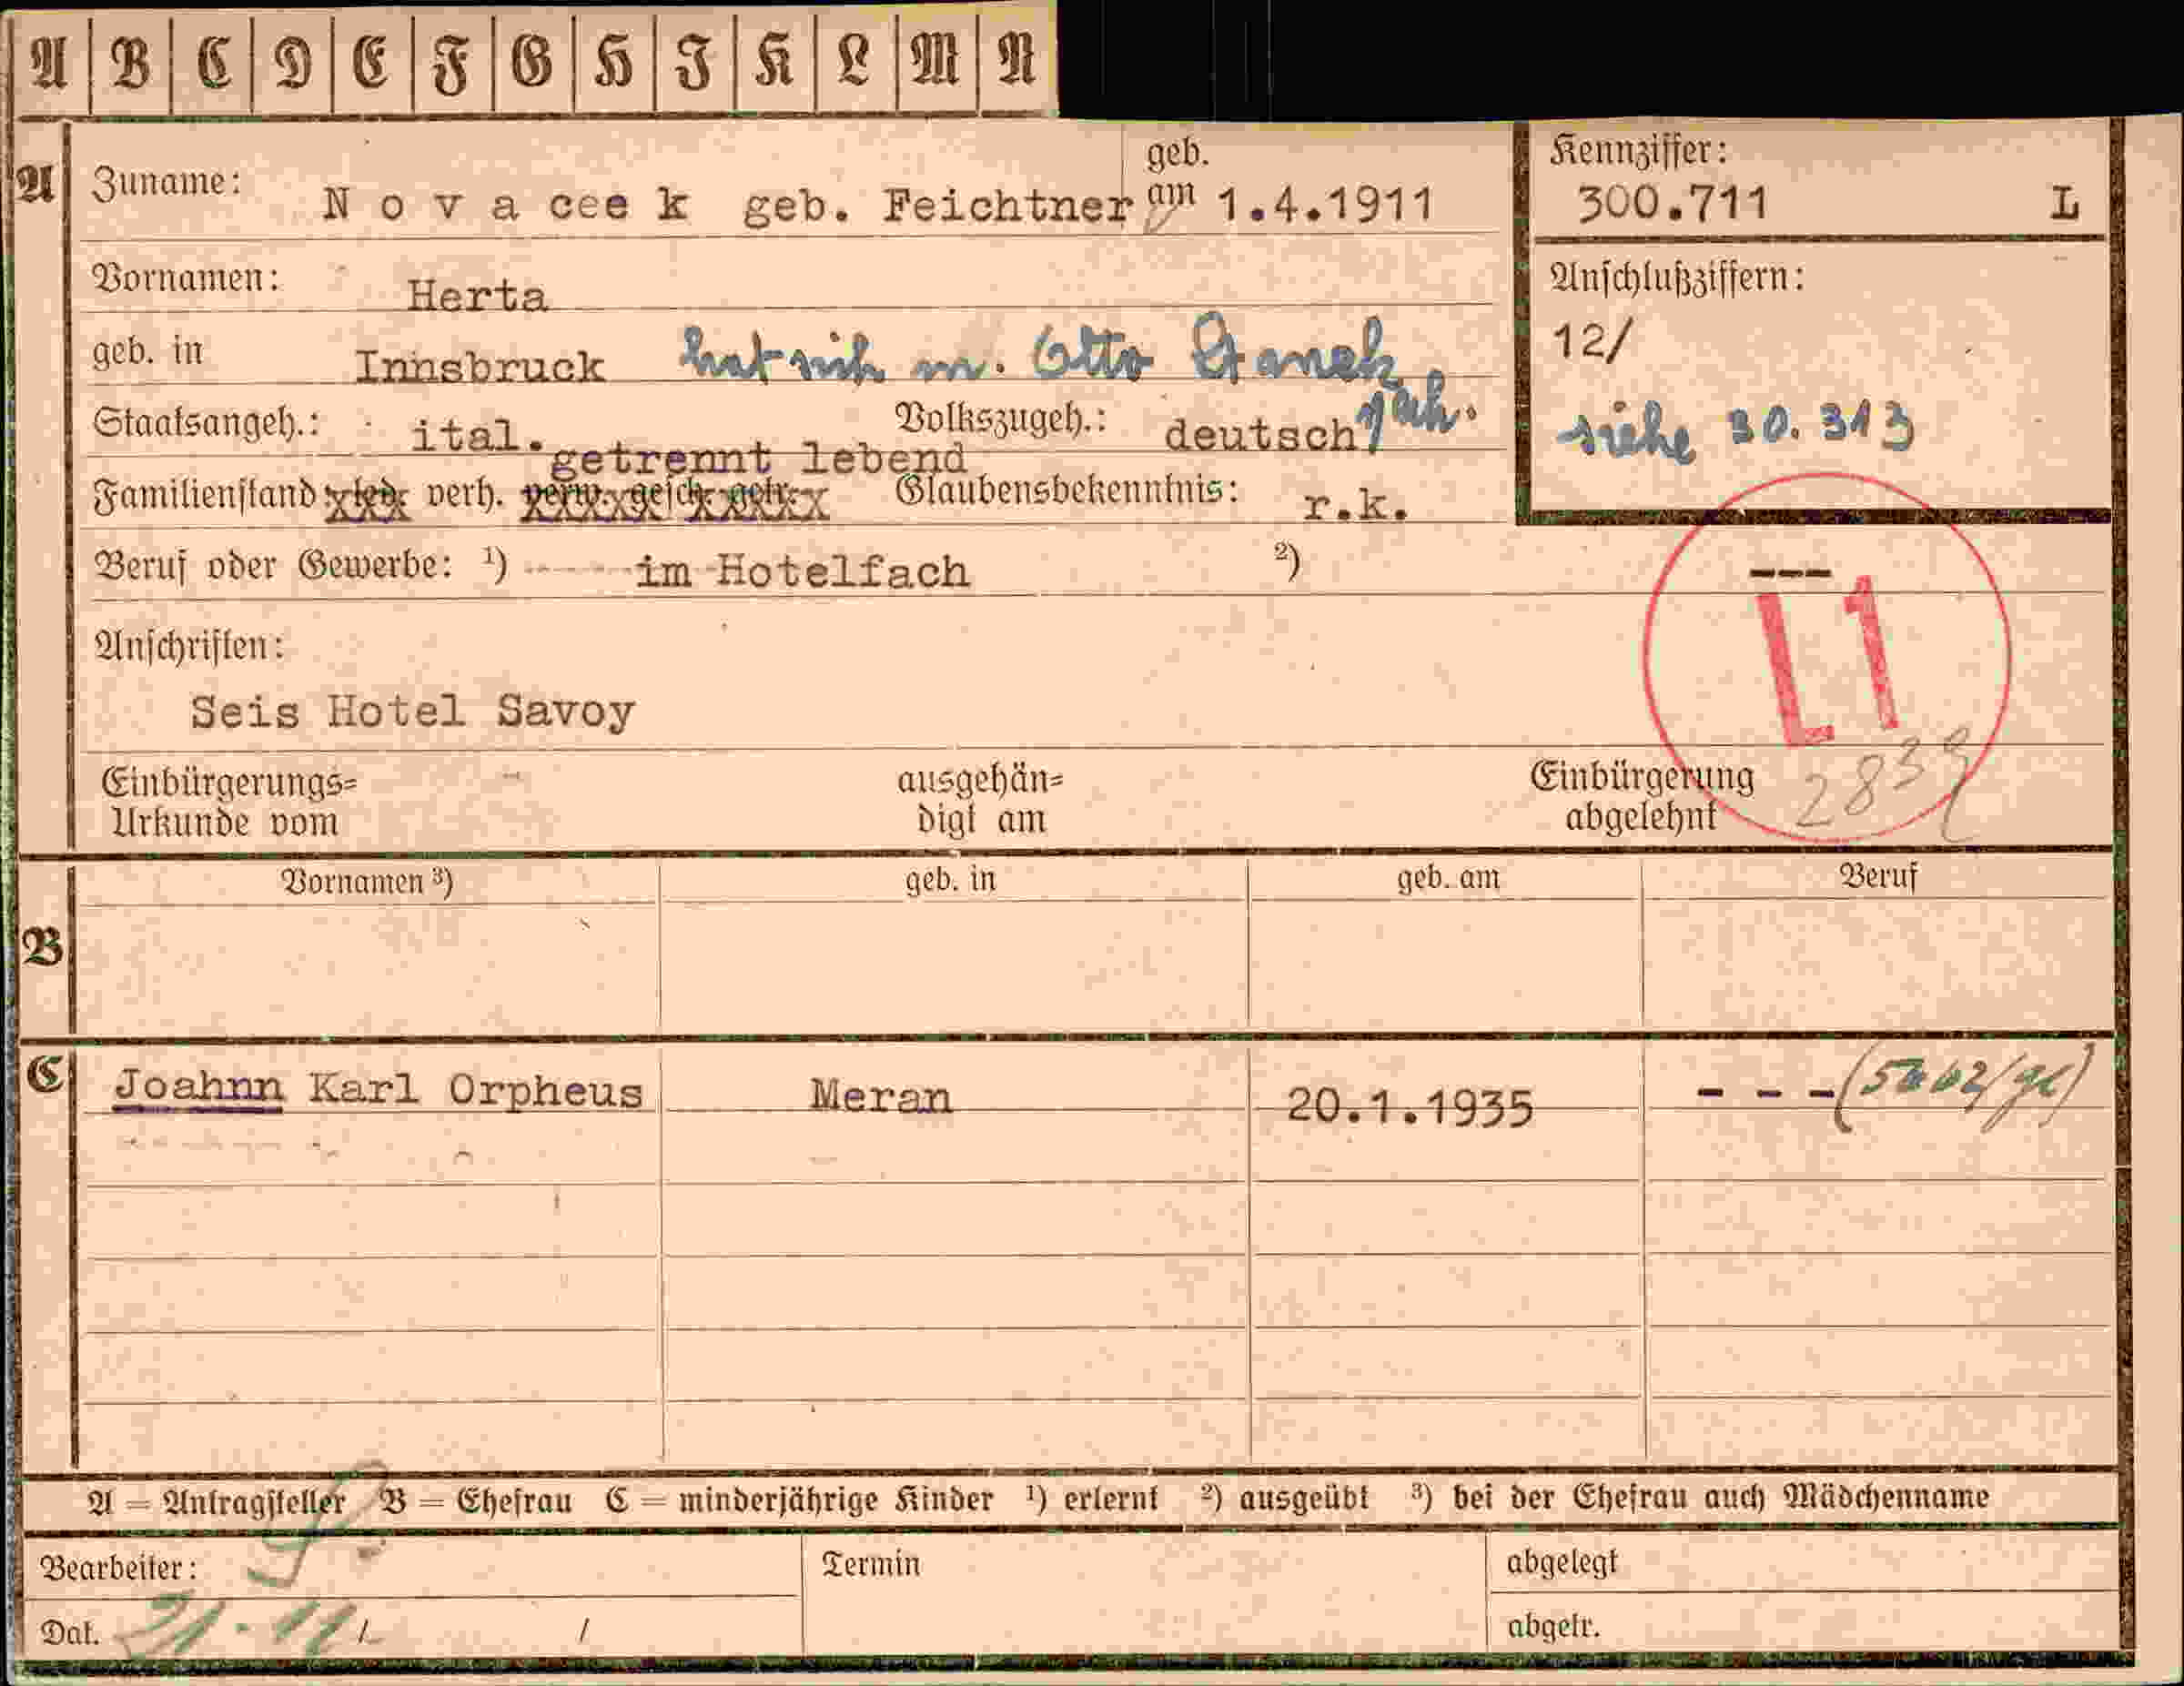 A B C D E F G H I K L M N
A Zuname: N o v a cee k geb. Feichtner geb. am 1.4.1911
Kennziffer:
300.711 L
Vornamen: Herta
Anschlußziffern:
12/
siehe 30.313
geb. in Innsbruck hat sich m. Otto
Staatsangeh.: ital. Volkszugeh.: deutsch
getrennt lebend
Familienstand led. verh. verw. gesch. getr. Glaubensbekenntnis: r.k.
Beruf oder Gewerbe: 1) im Hotelfach 2) ---
L1
Anschriften:
Seis Hotel Savoy
2839
Einbürgerungs=
Urkunde vom
ausgehän=
digt am
Einbürgerung
abgelehnt
B Vornamen 3) geb. in geb. am Beruf
C Joahnn Karl Orpheus Meran 20.1.1935 - - -
A = Antragsteller B = Ehefrau C = minderjährige Kinder 1) erlernt 2) ausgeübt 3) bei der Ehefrau auch Mädchenname
Bearbeiter: Termin abgelegt
Dat. 21.11/ / abgetr.